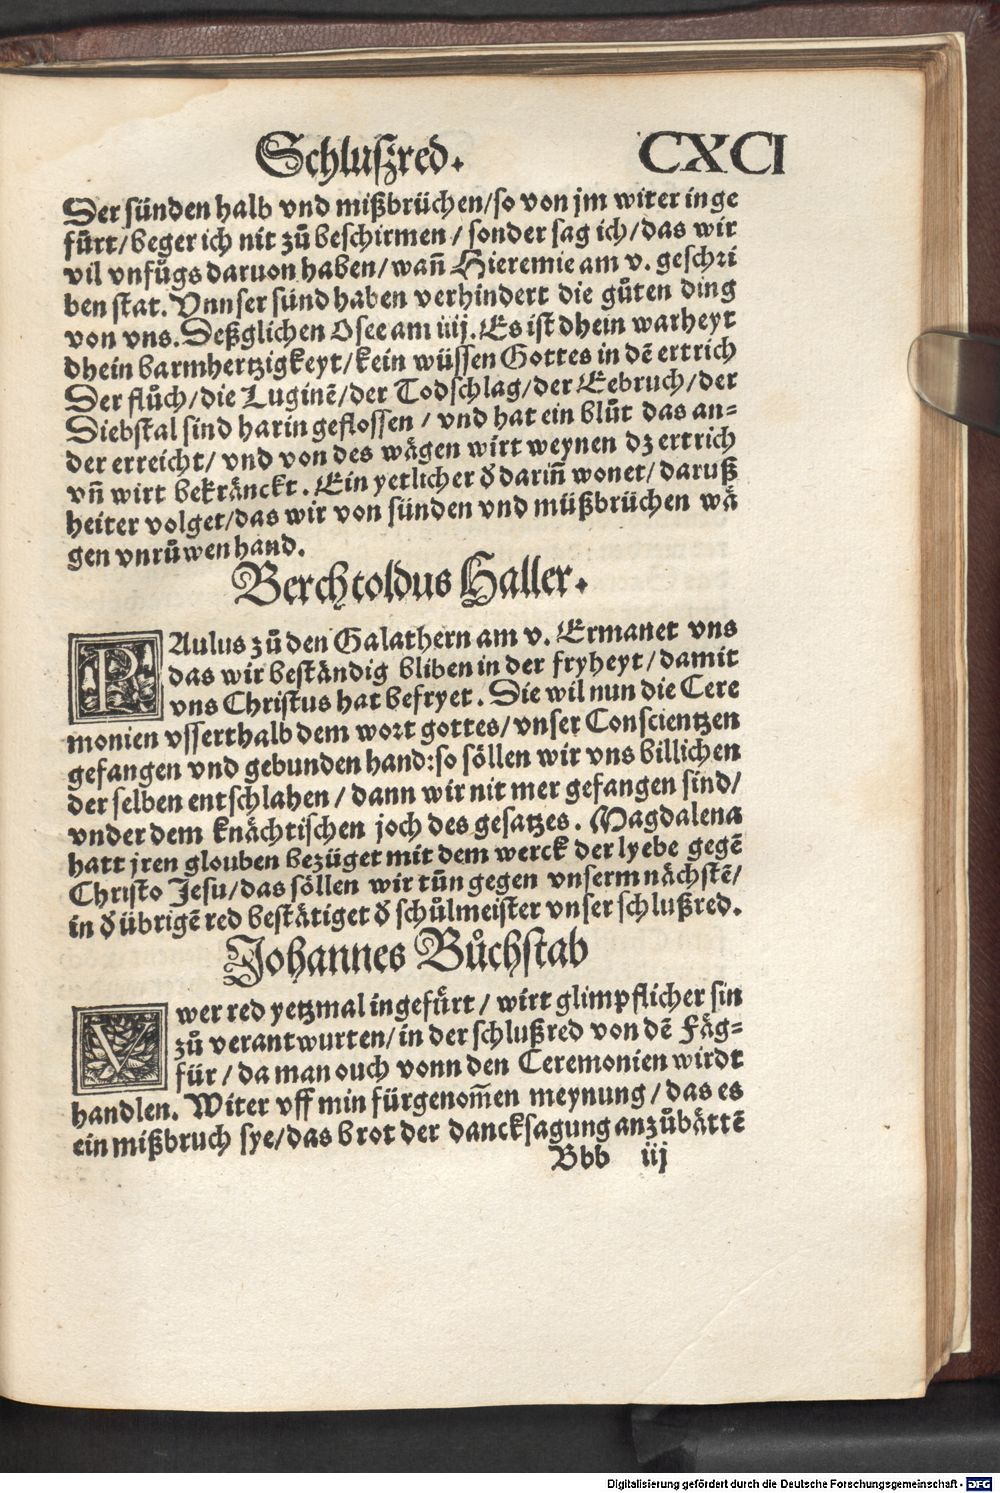 Schluſzred. CXCI
Der ſünden halb vnd mißbrüchen/ſo von jm witer inge
fürt/beger ich nit zů beſchirmen / ſonder ſag ich/das wir
vil vnfůgs daruon haben/wañ Hieremie am v. geſchri
ben ſtat. Vnnſer ſünd haben verhindert die gůten ding
von vns. Deßglichen Oſee am iiij. Es iſt dhein warheyt
dhein barmhertzigkeyt/kein wüſſen Gottes in dē ertrich
Der flůch/die Luginē/der Todſchlag/der Eebruch/der
Diebſtal ſind harin gefloſſen / vnd hat ein blůt das an-
der erreicht/ vnd von des wägen wirt weynen dz ertrich
vñ wirt bekränckt. Ein yetlicher ď dariñ wonet/ daruß
heiter volget/das wir von ſünden vnd müßbrüchen wä
gen vnrůwen hand.
Berchtoldus Haller.
PAulus zů den Galathern am v. Ermanet vns
das wir beſtändig bliben in der fryheyt/damit
vns Chriſtus hat befryet. Die wil nun die Cere
monien vſſerthalb dem wort gottes/vnſer Conſcientzen
gefangen vnd gebunden hand:ſo ſöllen wir vns billichen
der ſelben entſchlahen / dann wir nit mer gefangen ſind/
vnder dem knächtiſchen joch des geſatzes. Magdalena
hatt jren glouben bezüget mit dem werck der lyebe gegē
Chriſto Jeſu/das ſöllen wir tůn gegen vnſerm nächſtē/
in ď übrigē red beſtätiget ď ſchůlmeiſter vnſer ſchlußred.
Johannes Bůchſtab
Vwer red yetzmal ingefürt / wirt glimpflicher ſin
zů verantwurten/in der ſchlußred von dē Fäg-
für / da man ouch vonn den Ceremonien wirdt
handlen. Witer vff min fürgenom̄en meynung/das es
ein mißbruch ſye/das brot der danckſagung anzůbättē
Bbb iij
Digitalisierung gefördert durch die Deutsche Forschungsgemeinschaft - DFG